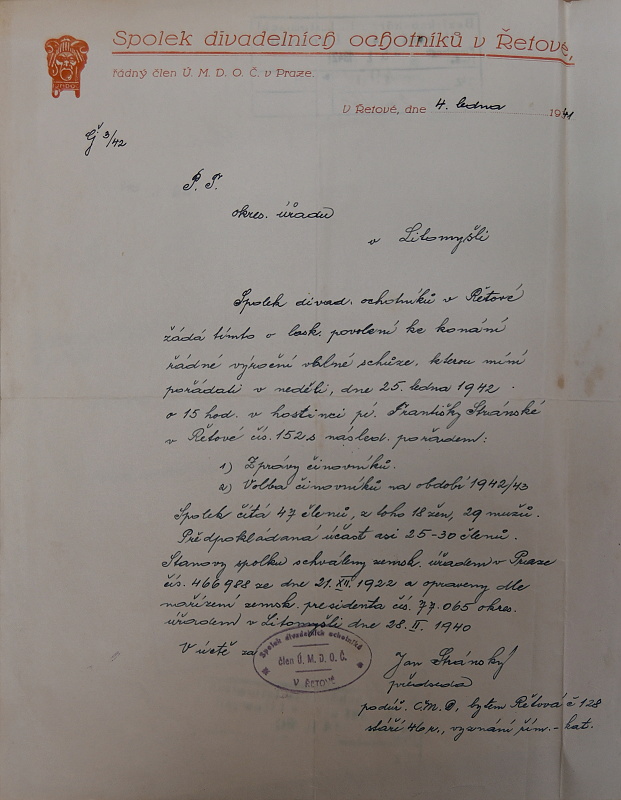 Spolek divadelních ochotníků v Řetové,
řádný člen Ú. M. D. O. Č. v Praze.
V Řetové, dne 4. ledna 1941
Čj 3/42
P. T.
okres. úřadu
v Litomyšli
Spolek divad. ochotníků v Řetové
žádá tímto o lask. povolení ke konání
řádné výroční valné schůze, kterou míní
pořádati v neděli, dne 25. ledna 1942
o 15 hod. v hostinci pí. Františky Stránské
v Řetové čís. 152 s násled. pořadem:
1) Zprávy činovníků.
2) Volba činovníků na období 1942/43
Spolek čítá 47 členů, z toho 18 žen, 29 mužů.
Předpokládaná účast asi 25-30 členů.
Stanovy spolku schváleny zemsk. úřadem v Praze
čís. 466988 ze dne 21. XII. 1922 a opraveny dle
nařízení zemsk. presidenta čís. 77.065 okres.
úřadem v Litomyšli dne 28. II. 1940
V úctě za
Spolek divadelních ochotníků
člen Ú. M. D. O. Č.
V ŘETOVÉ
Jan Stránský
předseda
podúř. Č.M.D., bytem Řetová č 128
stáří 46 r., vyznání řím.-kat.